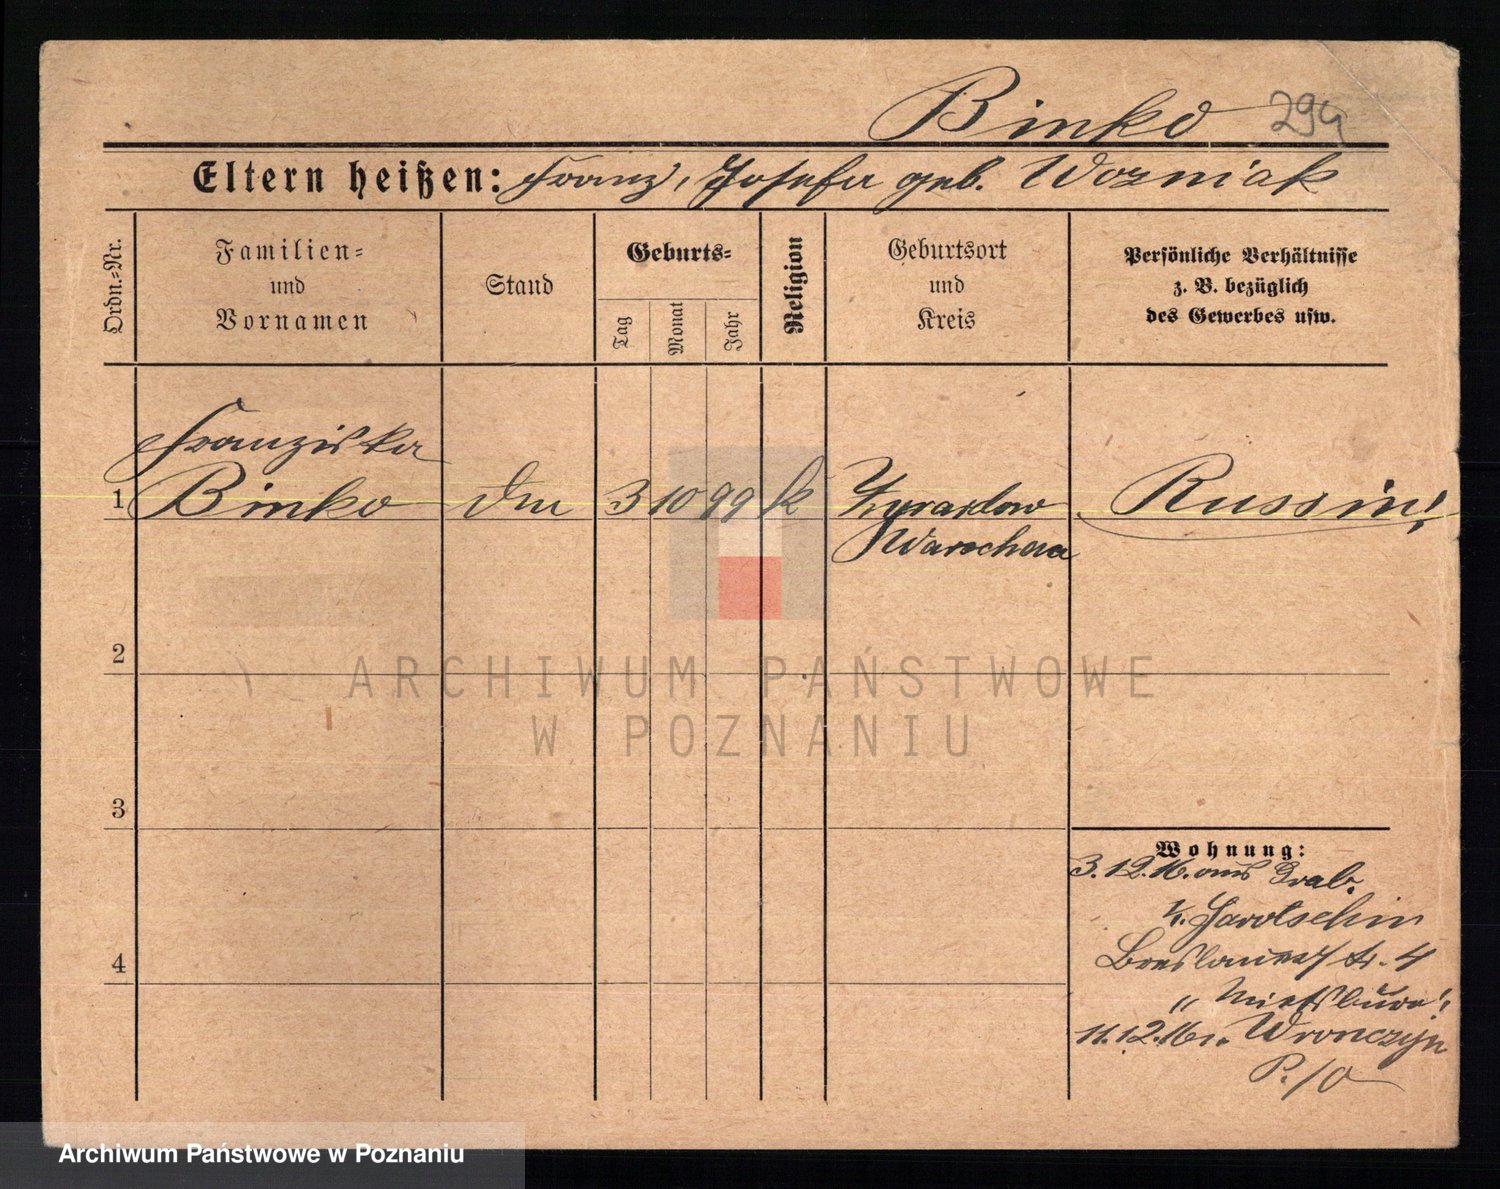 Binko 294
Eltern heißen: Franz, Josefa geb. Wozniak
Ordn.=Nr.
Familien=
und
Vornamen
Stand
Geburts=
Tag
Monat
Jahr
Religion
Geburtsort
und
Kreis
Persönliche Verhältnisse
z. B. bezüglich
des Gewerbes usw.
Franziska
1 Binko 3 10 99 k Zyrardow Russin!
Warschau
2
ARCHIWUM PAŃSTWOWE
W POZNANIU
3
Wohnung:
3.12.16. aus Grab.
k. Jarotschin
Breslauerstr. 4
"Mietsbüro"
11.12.16 n. Wronczyn
P./O
4
Archiwum Państwowe w Poznaniu